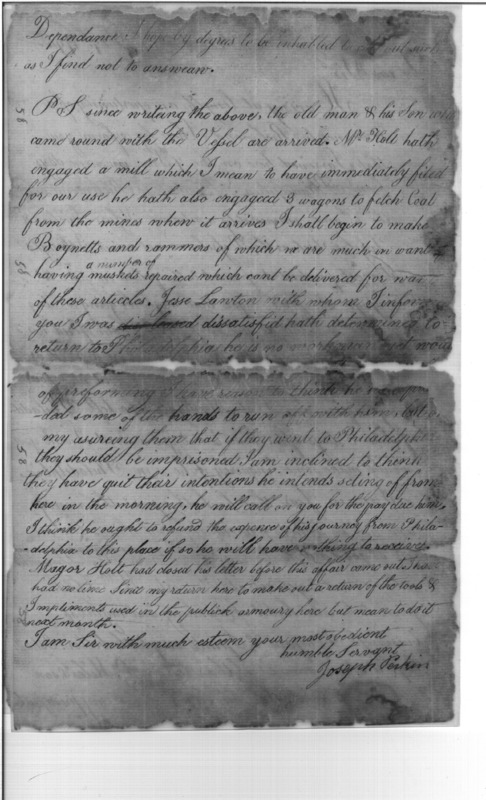 Dependance I hope by degres to be inhabled to
as I find not to answear.
PS since writeing the above, the old man & his Son who
came round with the Vessel are arrived. Mr. Holt hath
engaged a mill which I mean to have immediately fited
for our use he hath also engageed 3 wagons to fetch Coal
from the mines when it arrives I shall begin to make
Boynetts and rammers of which we are much in want
a number of
having muskets repaired which cant be delivered for wa
of these articles. Jesse Lawton with whom I inform
you I was dissatisfid hath determined to
return to Philadelphia he is no workman
of preforming I have reason to think he
-ded some of the hands to run off with him, but
my asureing them that if they went to Philadelphi
they should be imprisoned I am inclined to think
they have quit their intentions he intends seting off from
here in the morning, he will call on you for the pay due him,
I think he ought to refund the expence of his journey from Phila-
-delphia to this place if so he will have nothing to receive.
Magor Holt had closed his letter before this affair came out. I ha
had no time Since my return here to make out a return of the tools &
Impliments used in the publick armoury here but mean to do it
next month.
I am Sir with much esteem your most obedient
humble Servant
Joseph Perkin